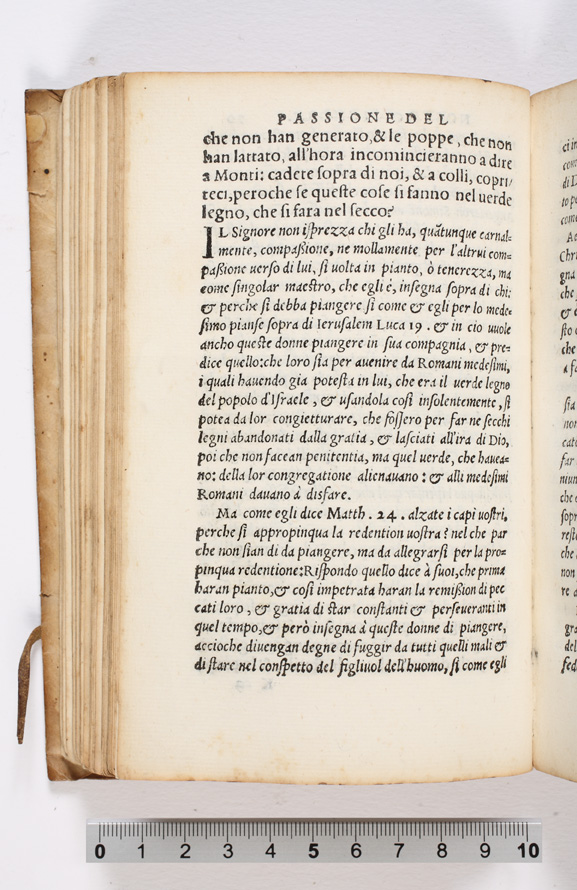 PASSIONE DEL
che non han generato,& le poppe, che non
han lattato, all'hora incomincieranno a dire
a Monti: cadete sopra di noi, & a colli, copri/
teci,peroche se queste cose si fanno nel uerde
legno, che si fara nel secco?
IL Signore non isprezza chi gli ha, quãtunque carnal=
mente, compaßione, ne mollamente per l'altrui com=
paßione uerso di lui, si uolta in pianto, ò tenerezza, ma
come singolar maestro, che egli è, insegna sopra di chi:
& perche si debba piangere si come & egli per lo mede=
simo pianse sopra di Ierusalem Luca 19. & in cio uuole
ancho queste donne piangere in sua compagnia, & pre=
dice quello:che loro sia per auenire da Romani medesimi,
i quali hauendo gia potesta in lui, che era il uerde legno
del popolo d'Israele, & usandola cosi insolentemente, si
potea da lor congietturare, che fossero per far ne secchi
legni abandonati dalla gratia, & lasciati all'ira di Dio,
poi che non facean penitentia, ma quel uerde, che hauea=
no: della lor congregatione alienauano: & alli medesimi
Romani dauano à disfare.
Ma come egli dice Matth. 24. alzate i capi uostri,
perche si appropinqua la redention uostra? nel che par
che non sian di da piangere, ma da allegrarsi per la pro=
pinqua redentione:Rispondo quello dice à suoi,che prima
haran pianto,& cosi impetrata haran la remißion di pec
cati loro, & gratia di star constanti & perseueranti in
quel tempo,& però insegna à queste donne di piangere,
accioche diuengan degne di fuggir da tutti quelli mali &
di stare nel conspetto del figliuol dell'huomo, si come egli
0 1 2 3 4 5 6 7 8 9 10